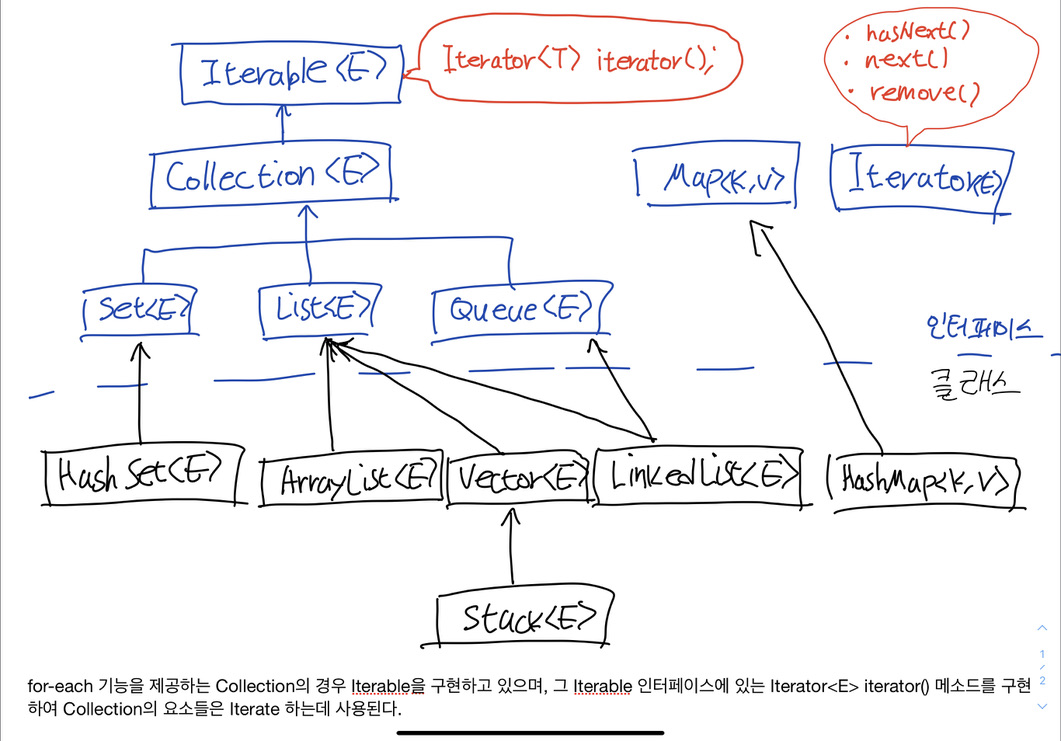 Iterable<E>
Iterator<T> iterator();
· hasNext()
· next()
· remove()
Collection<E>
Map<K,V>
Iterator<E>
Set<E>
List<E>
Queue<E>
인터페이스
클래스
HashSet<E>
ArrayList<E>
Vector<E>
LinkedList<E>
HashMap<K,V>
Stack<E>
1
/
2
for-each 기능을 제공하는 Collection의 경우 Iterable을 구현하고 있으며, 그 Iterable 인터페이스에 있는 Iterator<E> iterator() 메소드를 구현
하여 Collection의 요소들은 Iterate 하는데 사용된다.